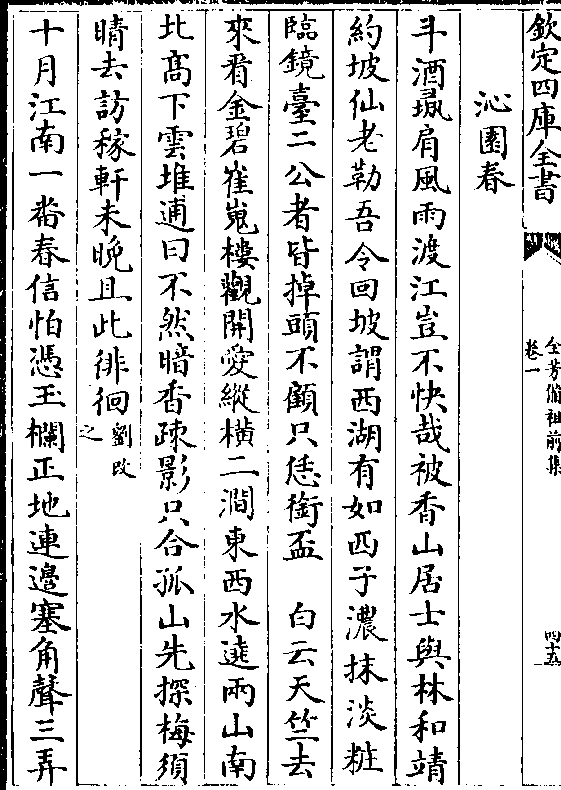 欽定四庫全書
全芳備祖前集
卷一
四十五
沁園春
斗酒彘肩風雨渡江豈不快哉被香山居士與林和靖
約坡仙老勒吾令回坡謂西湖有如西子濃抹淡粧
臨鏡臺二公者皆掉頭不顧只恁銜盃　白云天竺去
來看金碧崔嵬樓觀開愛縱橫二澗東西水遶兩山南
北髙下雲堆逋曰不然暗香疎影只合孤山先探梅須
晴去訪稼軒未晚且此徘徊劉改
之
十月江南一畨春信怕憑玉欄正地連邊塞角聲三弄